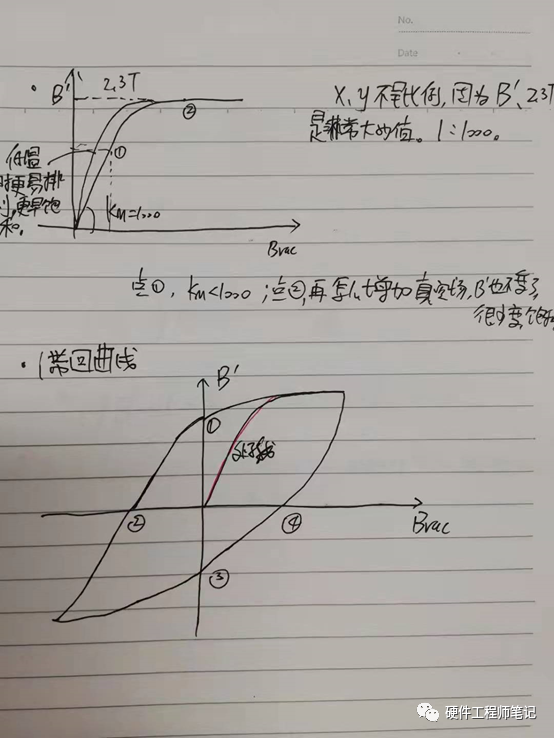 No.
Date
B'
2.3T
②
①
低温
时更易排
列,更早饱
和。
Km=1000
Bvac
X、y 不是比例,因为 B'、2.3T
是非常大的值。1:1000。
点①,Km<1000;点②,再怎么增加真空场,B'也不变了
很少变,饱和
·磁滞回曲线
B'
①
②
③
④
Bvac
硬件工程师笔记